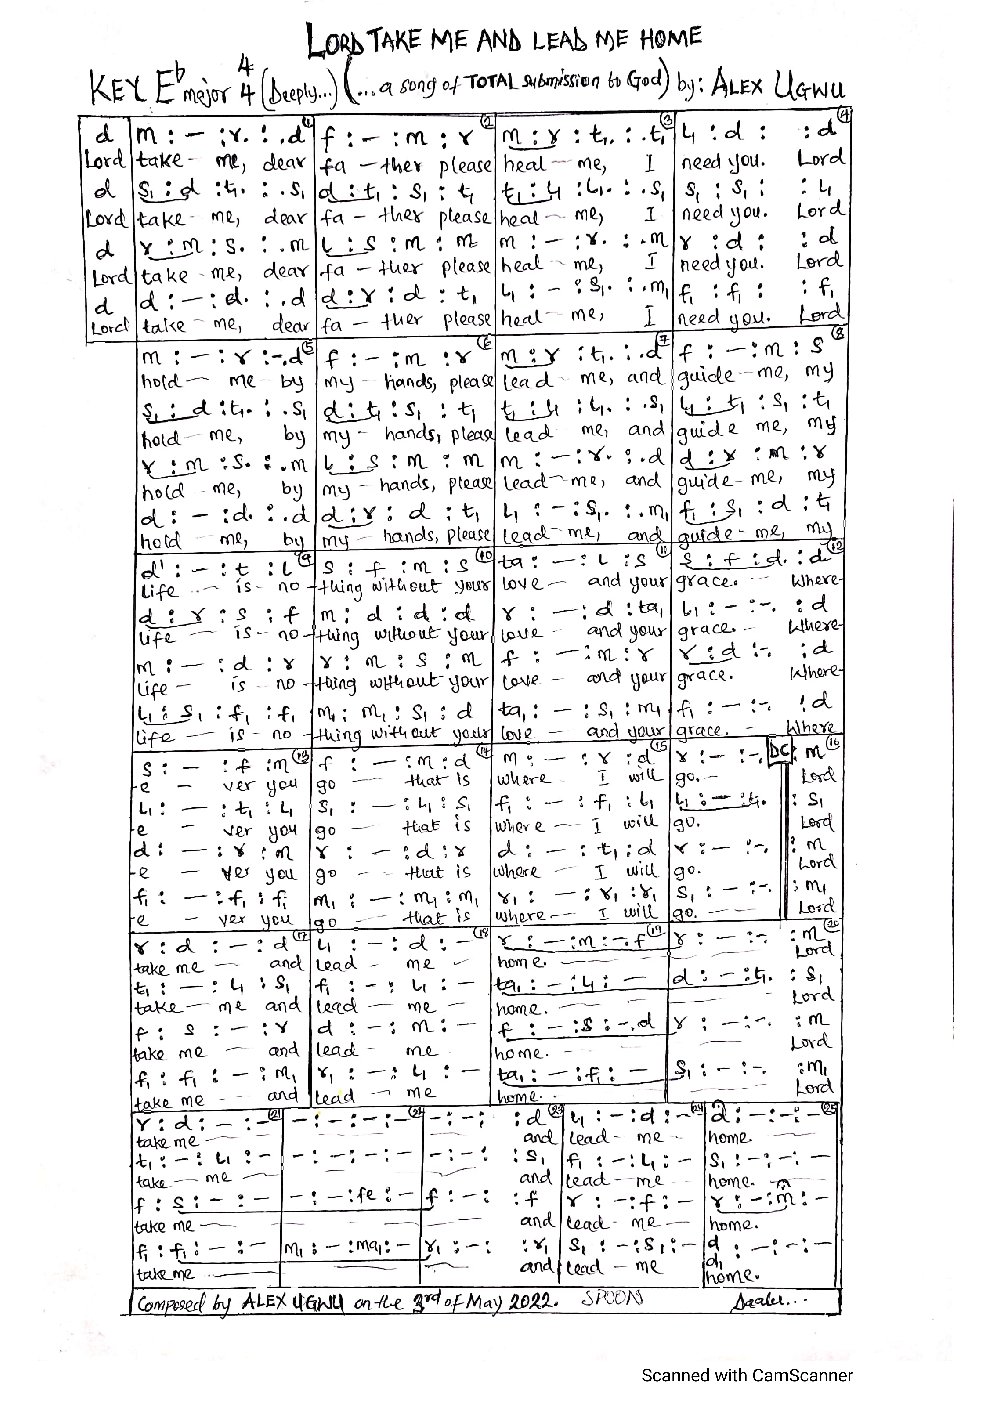 LORD TAKE ME AND LEAD ME HOME
KEY E♭ major 4/4 (Deeply...) (...a song of TOTAL submission to God) by: ALEX UGWU
d | m : – : r . : . d ① | f : – : m : r ② | m : r : t₁ . : . t₁ ③ | l₁ : d : : d ④
Lord | take – me, dear | fa – ther please | heal – me, I | need you. Lord
d | s₁ : d : t₁ . : . s₁ | d : t₁ : s₁ : t₁ | t₁ : l₁ : l₁ . : . s₁ | s₁ : s₁ : : l₁
Lord | take – me, dear | fa – ther please | heal – me, I | need you. Lord
d | r : m : s . : . m | l : s : m : m | m : – : r . : . m | r : d : : d
Lord | take – me, dear | fa – ther please | heal – me, I | need you. Lord
d | d : – : d . : . d | d : r : d : t₁ | l₁ : – : s₁ . : . m₁ | f₁ : f₁ : : f₁
Lord | take – me, dear | fa – ther please | heal – me, I | need you. Lord
m : – : r : - . d ⑤ | f : – : m : r ⑥ | m : r : t₁ . : . d ⑦ | f : – : m : s ⑧
hold – me by | my – hands, please | lead me, and | guide – me, my
s₁ : d : t₁ . : . s₁ | d : t₁ : s₁ : t₁ | t₁ : l₁ : l₁ . : . s₁ | l₁ : t₁ : s₁ : t₁
hold – me, by | my – hands, please | lead me, and | guide me, my
r : m : s . : . m | l : s : m : m | m : – : r . : . d | d : r : m : r
hold – me, by | my – hands, please | lead – me, and | guide – me, my
d : – : d . : . d | d : r : d : t₁ | l₁ : – : s₁ . : . m₁ | f₁ : s₁ : d : t₁
hold – me, by | my – hands, please | lead – me, and | guide – me, my
d' : – : t : l ⑨ | s : f : m : s ⑩ | ta : – : l : s ⑪ | s : f : d . : d ⑫
life – is – no – | thing without your | love – and your | grace. – Where-
d : r : s : f | m : d : d : d | r : – : d : ta₁ | l₁ : – : - . : d
life – is – no – | thing without your | love – and your | grace. – Where-
m : – : d : r | r : m : s : m | f : – : m : r | r : d : - . : d
life – is – no – | thing without your | love – and your | grace. Where-
l₁ : s₁ : f₁ : f₁ | m₁ : m₁ : s₁ : d | ta₁ : – : s₁ : m₁ | f₁ : – : - . : d
life – is – no – | thing without your | love – and your | grace. – Where
s : – : f : m ⑬ | f : – : m : d ⑭ | m : – : r : d ⑮ | r : – : - . DC : m ⑯
-e – ver you | go – that is | where I will | go. – Lord
l₁ : – : t₁ : l₁ | s₁ : – : l₁ : s₁ | f₁ : – : f₁ : l₁ | l₁ : – : t₁ . : s₁
-e – ver you | go – that is | where – I will | go. Lord
d : – : r : m | r : – : d : r | d : – : t₁ : d | r : – : - . : m
-e – ver you | go – that is | where – I will | go. Lord
f₁ : – : f₁ : f₁ | m₁ : – : m₁ : m₁ | r₁ : – : r₁ : r₁ | s₁ : – : - . : m₁
-e – ver you | go – that is | where – I will | go. – Lord
r : d : – : d ⑰ | l₁ : – : d : – ⑱ | r : – : m : - . f ⑲ | r : – : - . : m ⑳
take me – and | lead – me – | home. – | Lord
t₁ : – : l₁ : s₁ | f₁ : – : l₁ : – | ta₁ : – : l₁ : – | d : – : t₁ . : s₁
take – me and | lead – me – | home. – | Lord
f : s : – : r | d : – : m : – | f : – : s : - . d | r : – : - . : m
take me – and | lead – me | home. – | Lord
f₁ : f₁ : – : m₁ | r₁ : – : l₁ : – | ta₁ : – : f₁ : – | s₁ : – : - . : m₁
take me – and | lead – me | home. . | Lord
r : d : – : – ㉑ | – : – : – : – ㉒ | – : – : : d ㉓ | l₁ : – : d : – ㉔ | d : – : – : – ㉕
take me – | and | lead – me – | home. –
t₁ : – : l₁ : – | – : – : – : – | – : – : : s₁ | f₁ : – : l₁ : – | s₁ : – : – : –
take – me – | and | lead – me – | home. –
f : s : – : – | – : – : fe : – | f : – : : f | r : – : f : – | r : – : m : –
take me – | and | lead – me – | home.
f₁ : f₁ : – : – | m₁ : – : ma₁ : – | r₁ : – : : r₁ | s₁ : – : s₁ : – | d : – : – : –
d₁
take me – | and | lead – me | home.
Composed by ALEX UGWU on the 3rd of May 2022. SPOON
Scanned with CamScanner